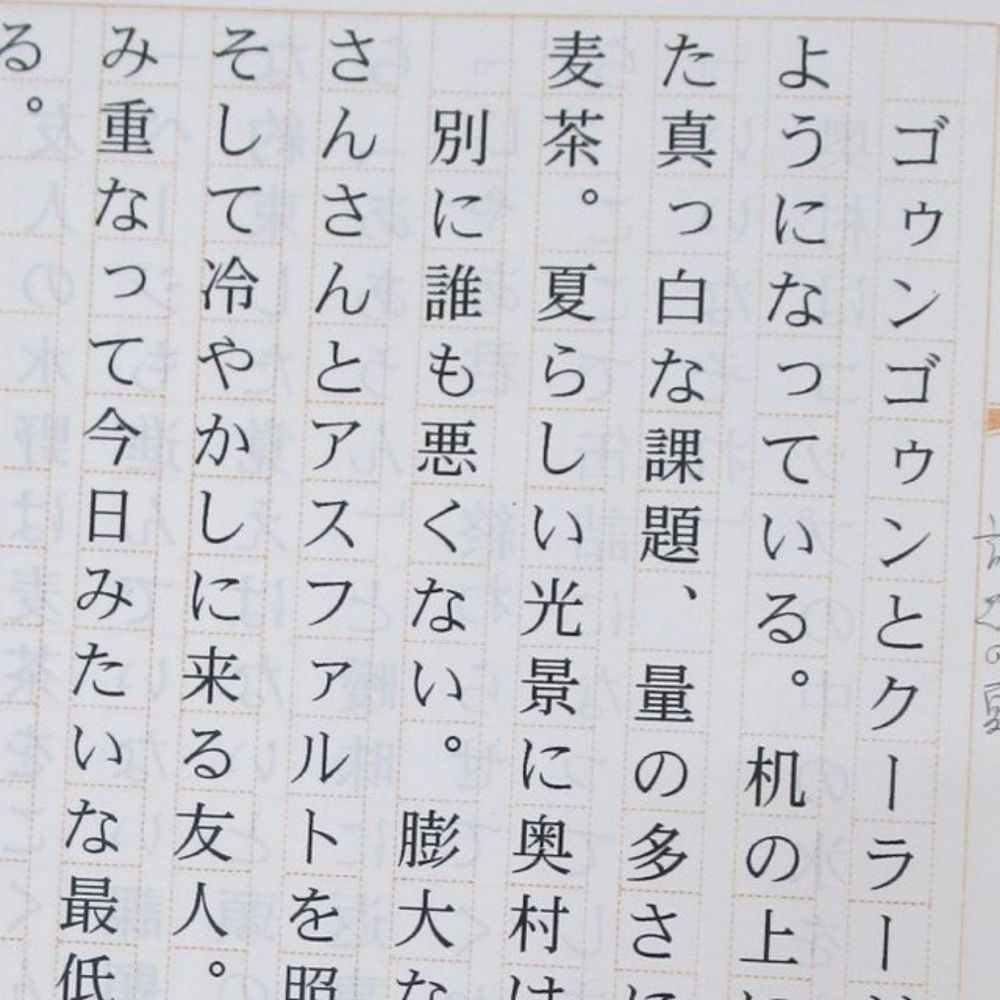 ゴゥンゴゥンとクーラー
ようになっている。机の上
た真っ白な課題、量の多さに
麦茶。夏らしい光景に奥村は
別に誰も悪くない。膨大な
さんさんとアスファルトを照
そして冷やかしに来る友人。
み重なって今日みたいな最低
る。